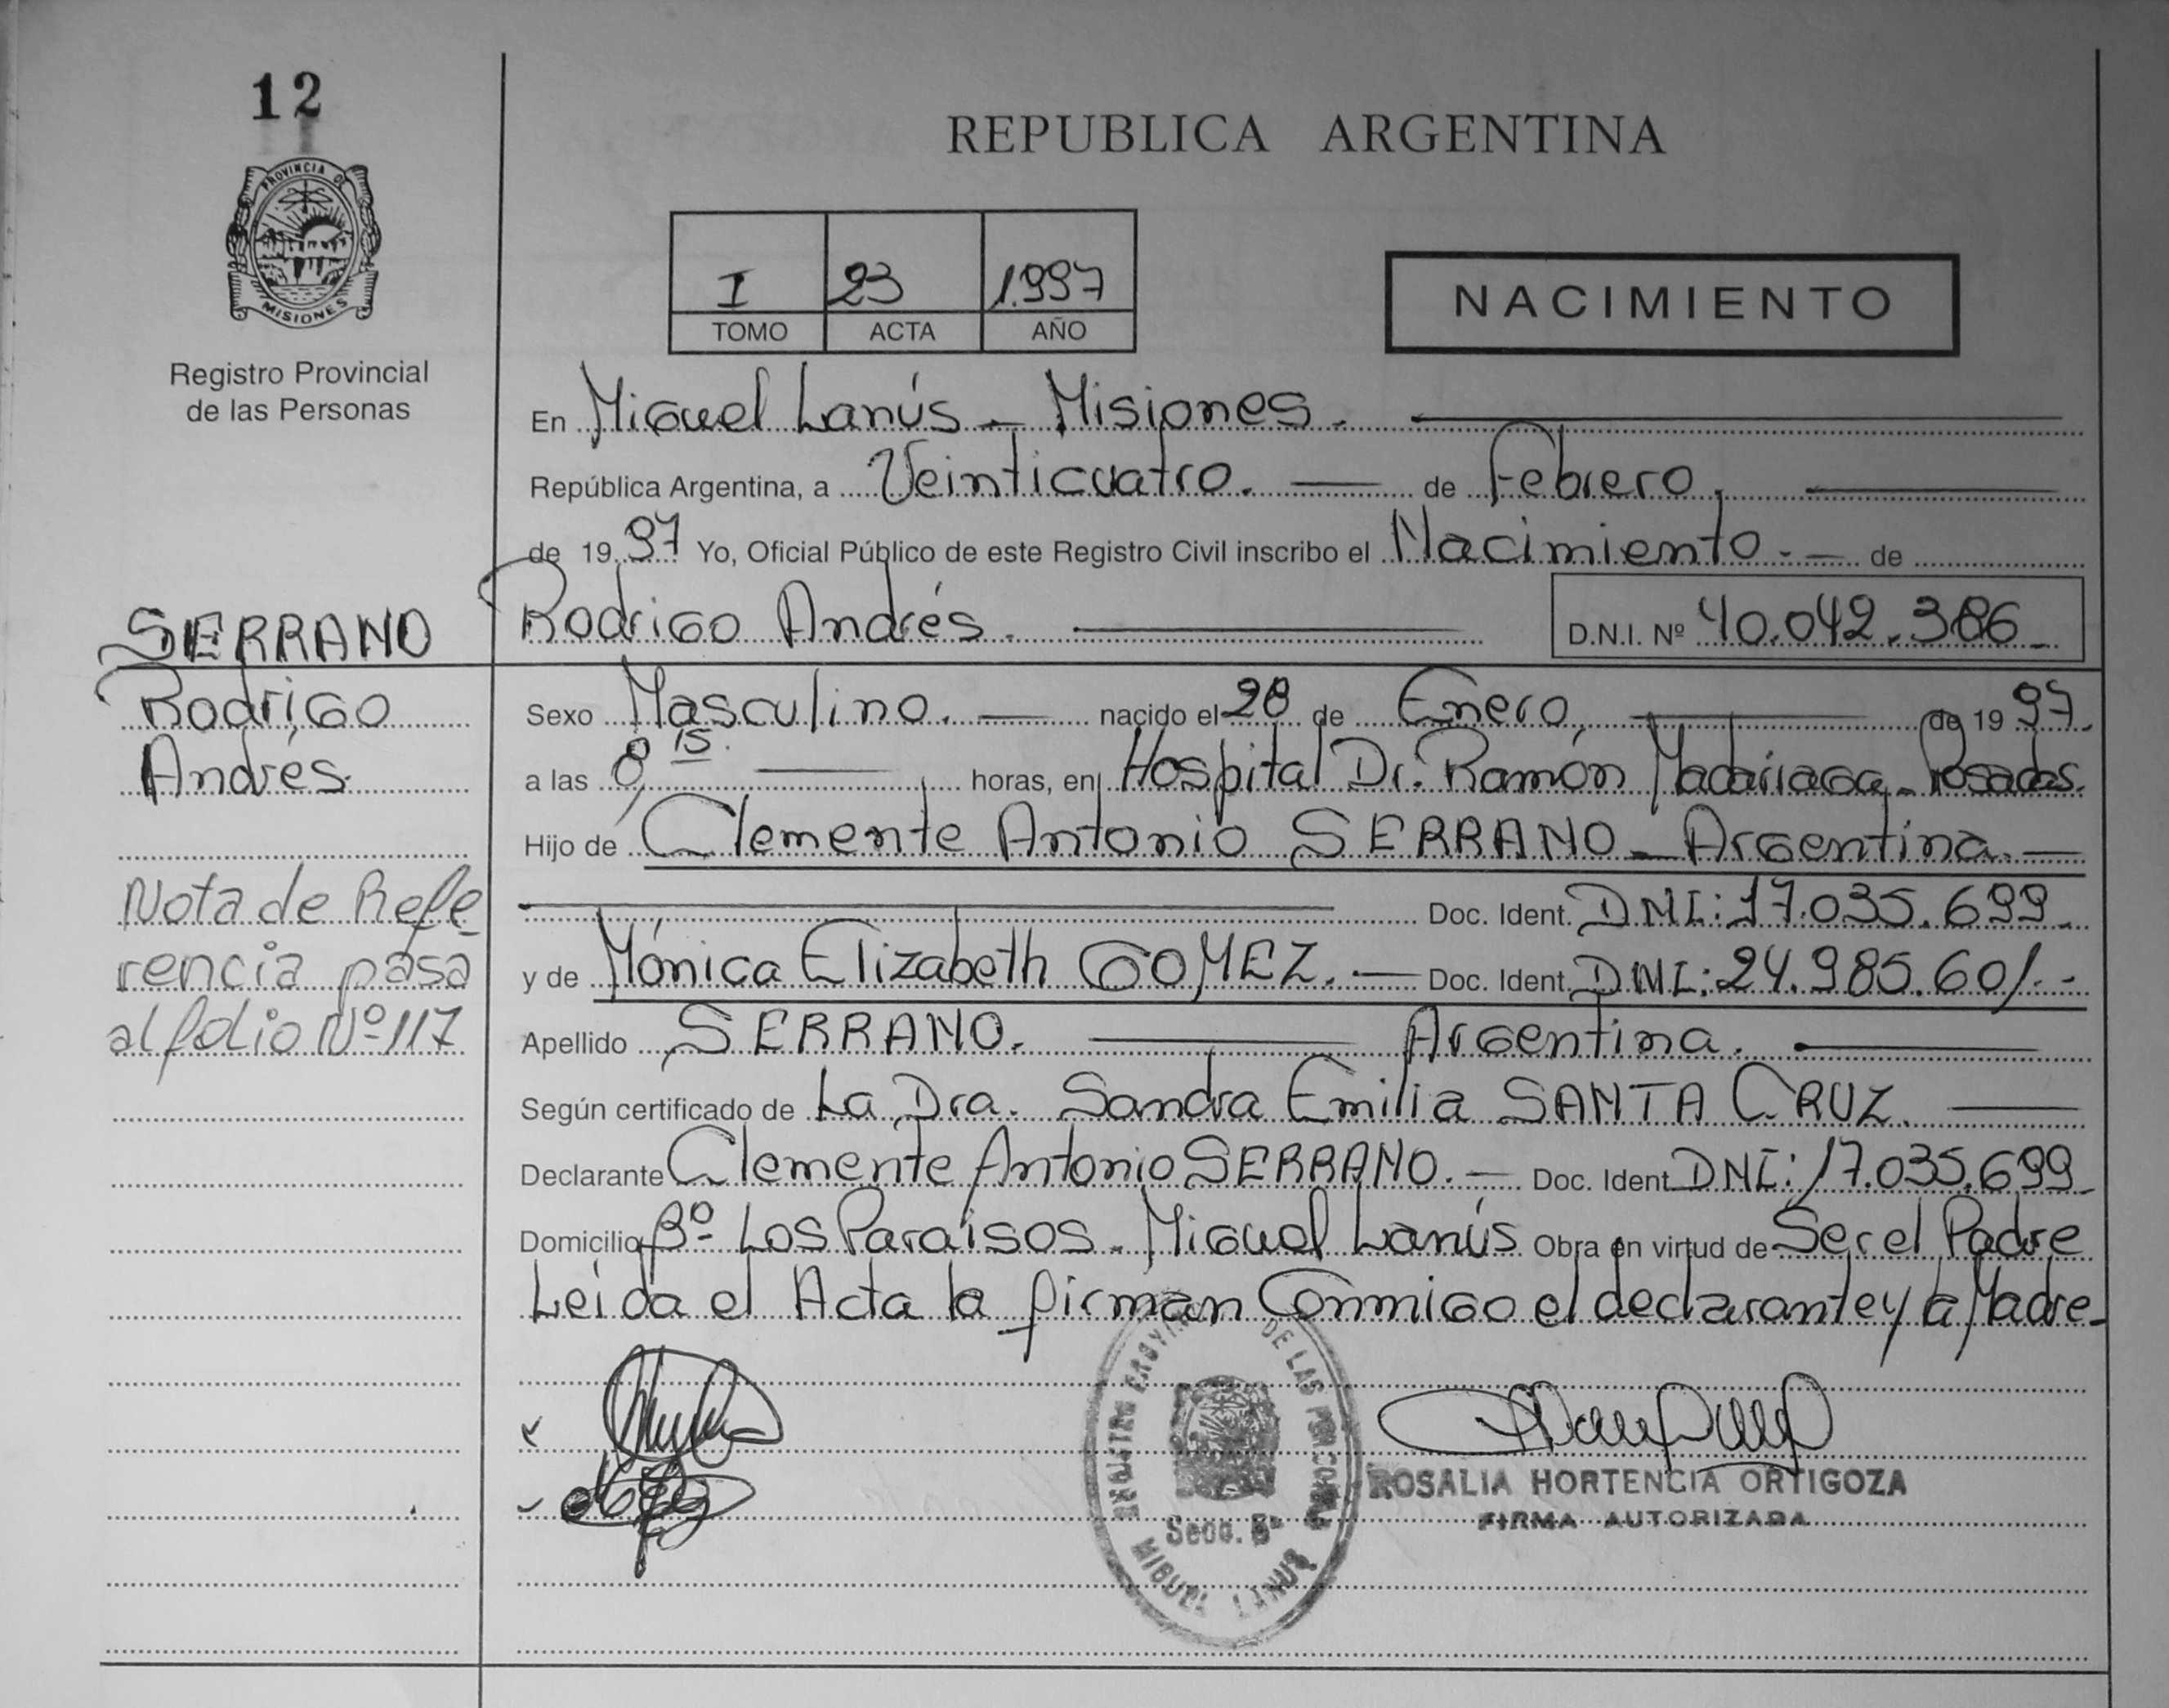 12
REPUBLICA ARGENTINA
PROVINCIA DE
MISIONES
I 23 1.997
TOMO ACTA AÑO
NACIMIENTO
Registro Provincial
de las Personas
En Miguel Lanús - Misiones.
República Argentina, a Veinticuatro. de Febrero.
de 19 97 Yo, Oficial Público de este Registro Civil inscribo el Nacimiento.- de
SERRANO
Rodrigo Andrés. D.N.I. Nº 40.042.386-
Rodrigo
Andrés.
Sexo Masculino. nacido el 28 de Enero de 19 97.
a las 8 15. horas, en Hospital Dr. Ramón Madariaga - Posadas.
Hijo de Clemente Antonio SERRANO - Argentina.
Nota de Refe-
rencia pasa
al folio Nº 117
Doc. Ident. DNI: 17.035.699.
y de Mónica Elizabeth GOMEZ. Doc. Ident. DNI: 24.985.601.-
Apellido SERRANO. Argentina.
Según certificado de La Dra. Sandra Emilia SANTA CRUZ.
Declarante Clemente Antonio SERRANO. Doc. Ident DNI: 17.035.699
Domicilio Bº Los Paraísos - Miguel Lanús Obra en virtud de Ser el Padre
Leída el Acta la firman Conmigo el declarante y la Madre-
DE LAS PERSONAS
Secc. 5ª
MIGUEL LANUS
ROSALIA HORTENCIA ORTIGOZA
FIRMA AUTORIZADA